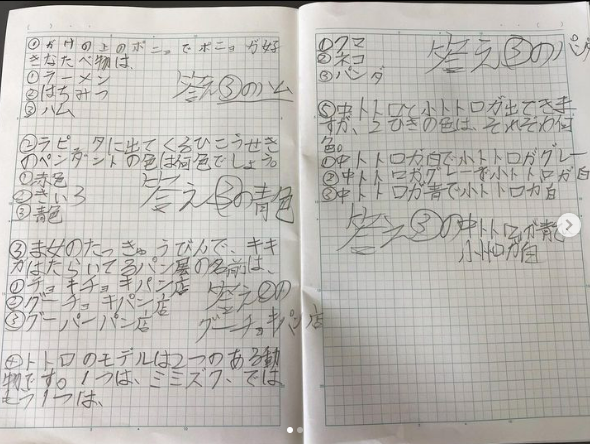 ①がけの上のポニョでポニョが好
きなたべ物は、
①ラーメン
②はちみつ
③ハム
答え③のハム
②ラピュタに出てくるひこうせき
のペンダントの色は何色でしょう。
①赤色
②きいろ
③青色
答え③の青色
③ま女のたっきゅうびんで、キキ
がはたらいてるパン屋の名前は、
①チョキチョキパン店
②グーチョキパン店
③グーパーパン店
答え②の
グーチョキパン店
④トトロのモデルは2つのある動
物です。1つは、ミミズク、では
もう1つは、
①クマ
②ネコ
③パンダ
答え③のパンダ
⑤中トトロと小トトロが出てきま
すが、2ひきの色は、それぞれ何
色。
①中トトロが白で小トトロがグレー
②中トトロがグレーで小トトロが白
③中トトロが青で小トトロが白
答え③の中トトロが青
小トトロが白